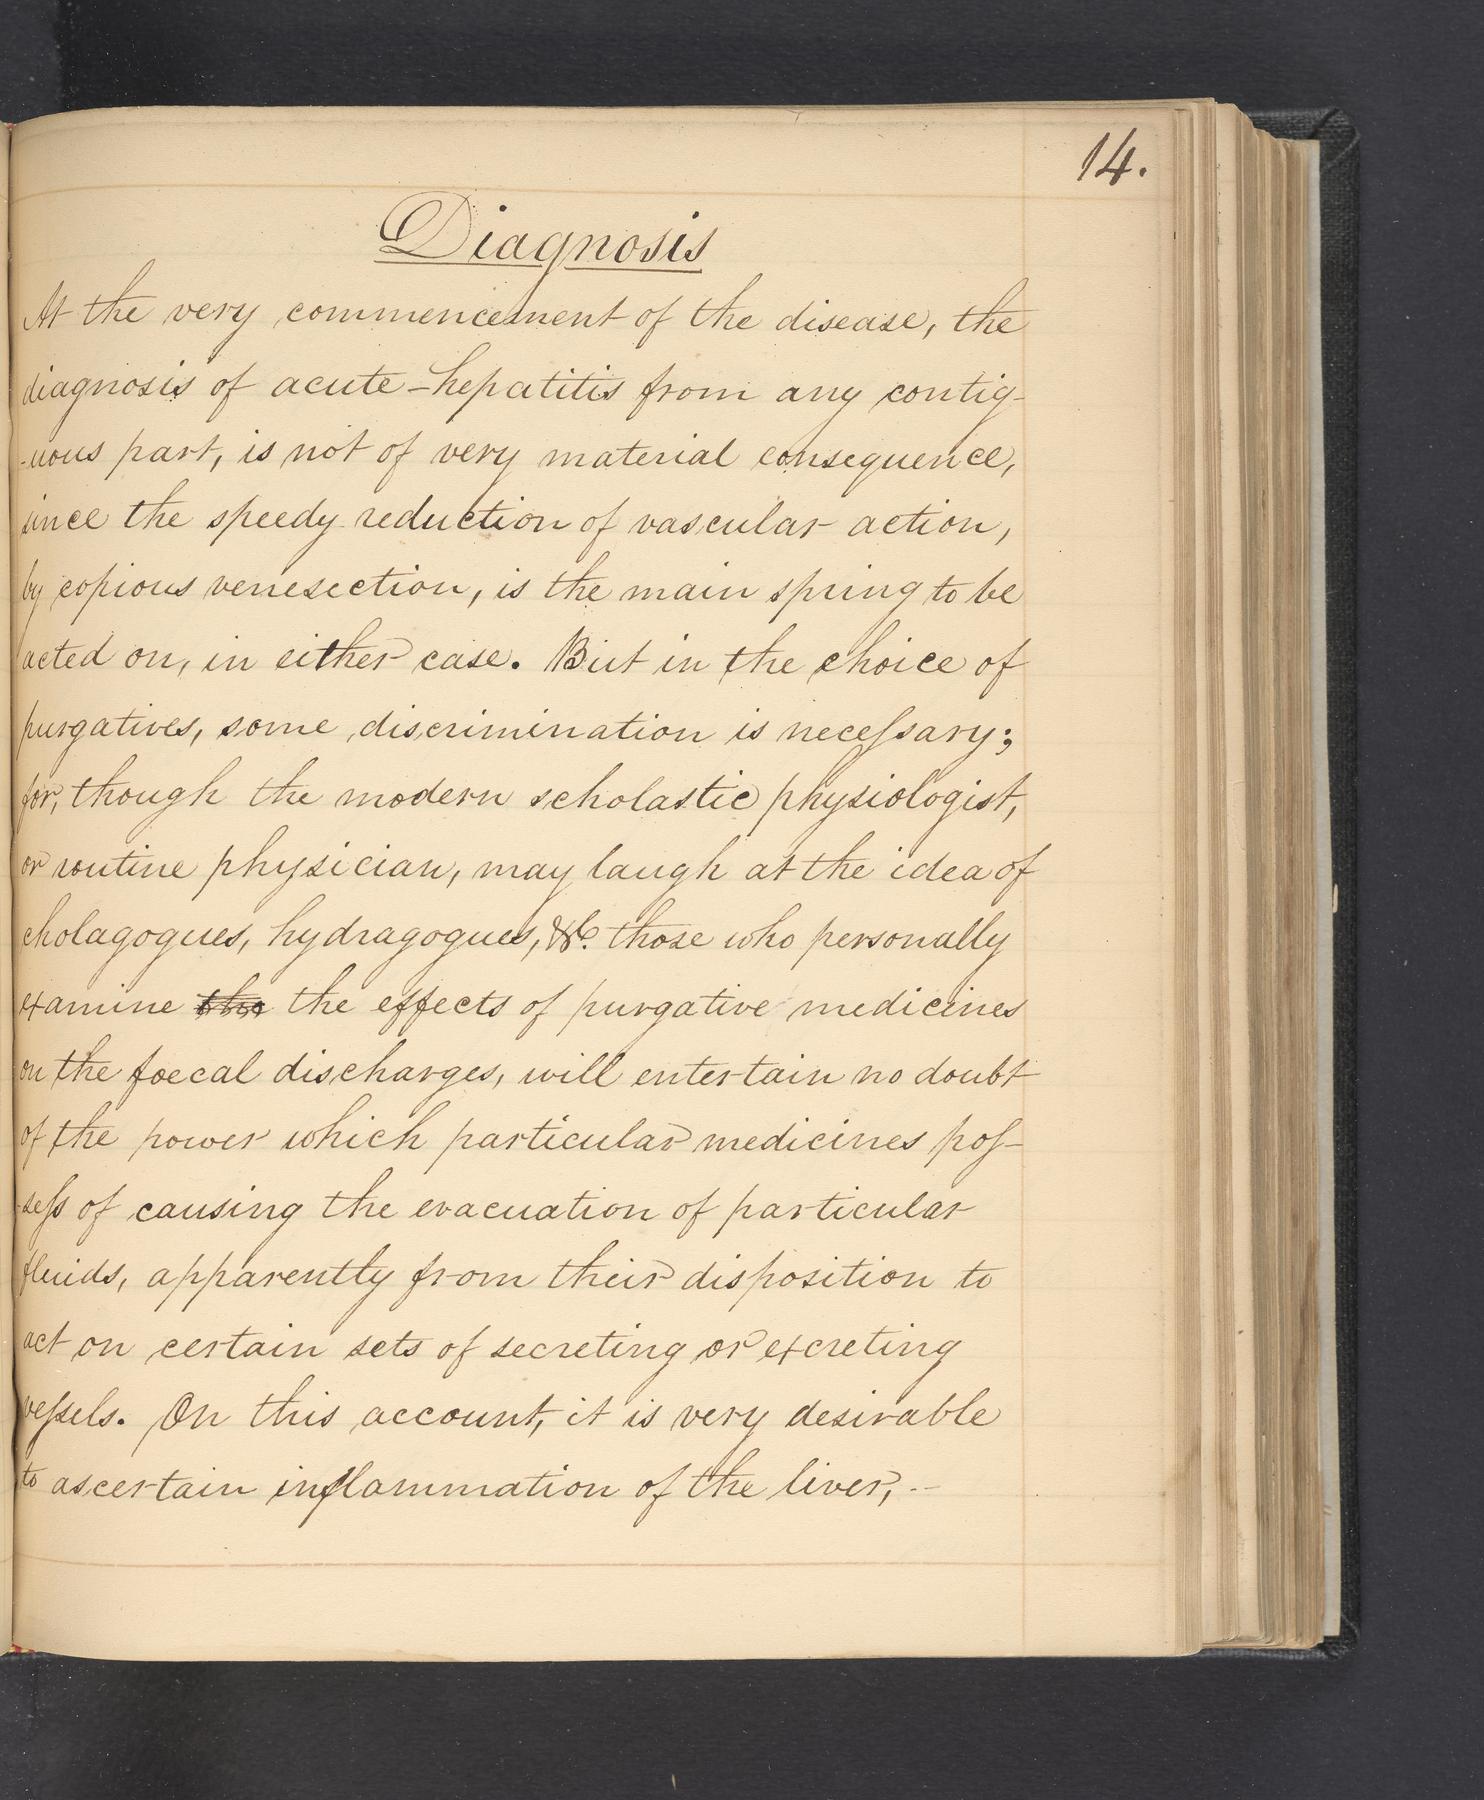 14.
Diagnosis
At the very commencement of the disease, the
diagnosis of acute-hepatitis from any contig-
-uous part, is not of very material consequence,
since the speedy reduction of vascular action,
by copious venesection, is the main spring to be
acted on, in either case. But in the choice of
purgatives, some discrimination is neceſsary;
for, though the modern scholastic physiologist,
or routine physician, may laugh at the idea of
cholagogues, hydragogues, &c. those who personally
examine the the effects of purgative medicines
on the foecal discharges, will entertain no doubt
of the power which particular medicines poſ-
-seſs of causing the evacuation of particular
fluids, apparently from their disposition to
act on certain sets of secreting or excreting
veſsels. On this account, it is very desirable
to ascertain inflammation of the liver, -